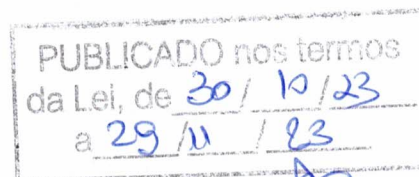 PUBLICADO nos termos
da Lei, de 30 / 10 / 23
a 29 / 11 / 23